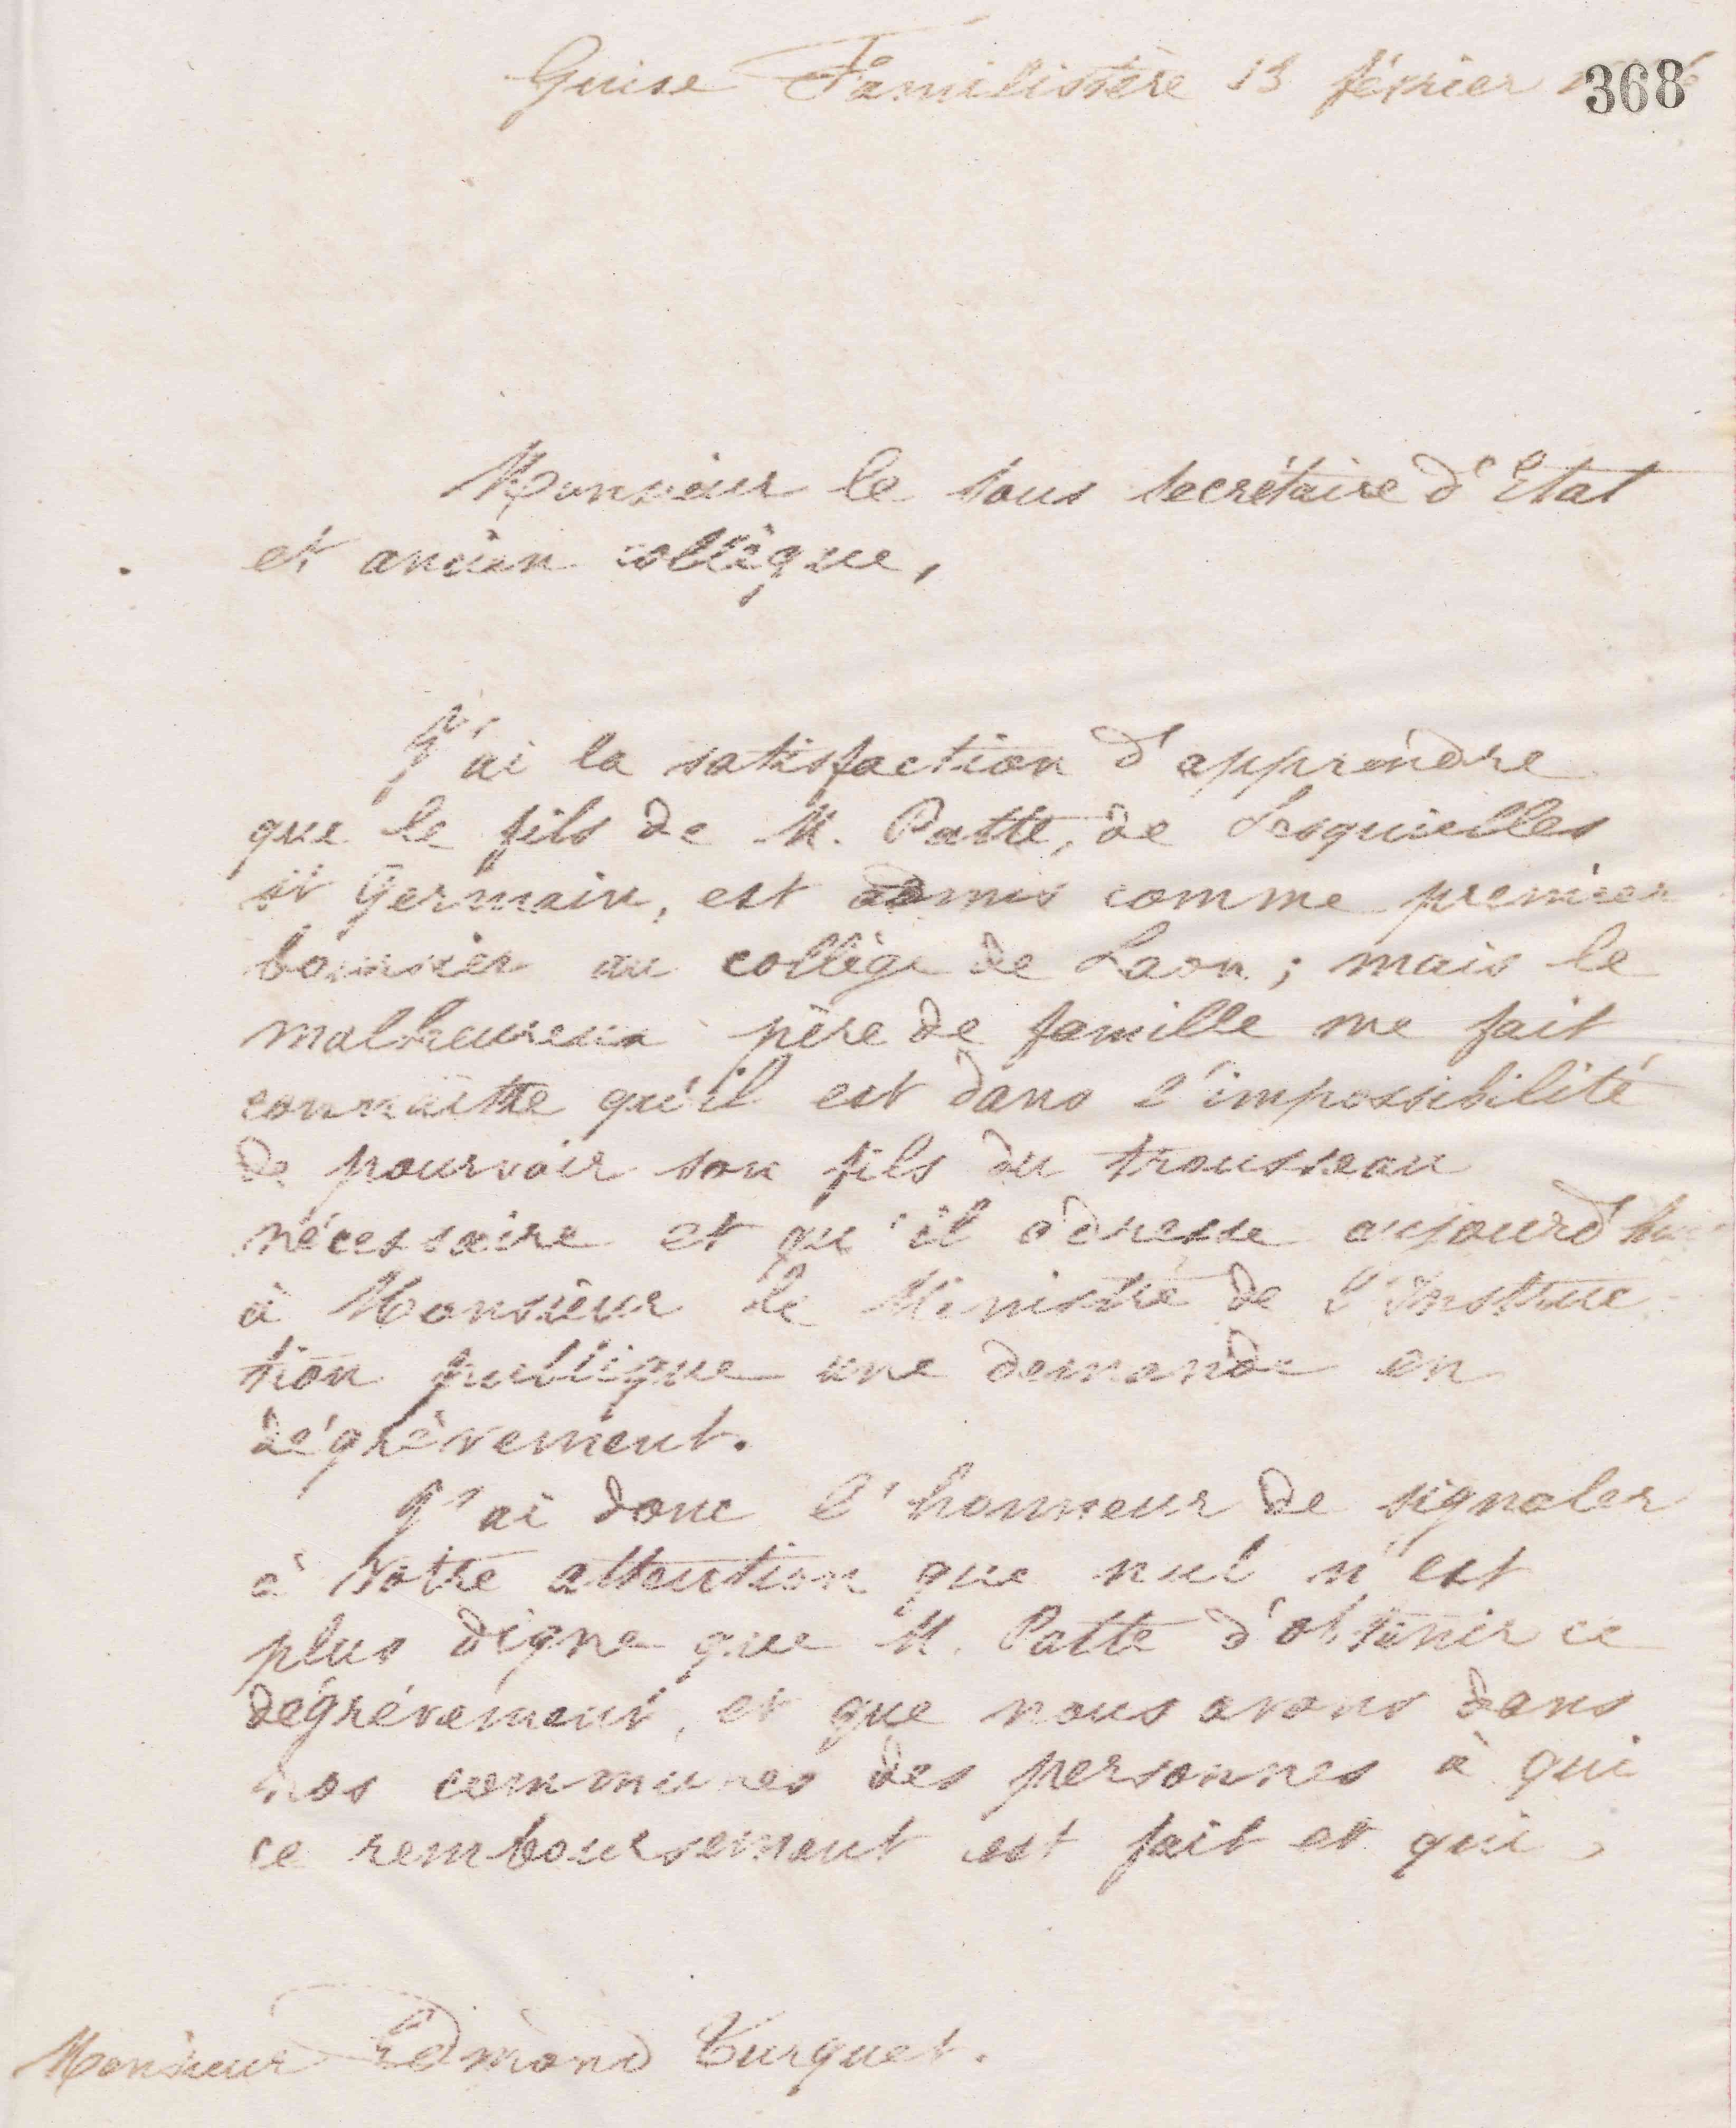 Guise Familistère 13 février
368
Monsieur le sous secrétaire d'Etat
et ancien collègue,
J'ai la satisfaction d'apprendre
que le fils de M. Patte, de Lesquielles
St Germain, est admis comme premier
boursier au collège de Laon ; mais le
malheureux père de famille me fait
connaître qu'il est dans l'impossibilité
de pourvoir son fils du trousseau
nécessaire et qu'il adresse aujourd'hui
à Monsieur le Ministre de l'Instruc-
tion publique une demande en
dégrèvement.
J'ai donc l'honneur de signaler
à votre attention que nul n'est
plus digne que M. Patte d'obtenir ce
dégrévement, et que nous avons dans
nos communes des personnes à qui
ce remboursement est fait et qui,
Monsieur Edmond Turquet.